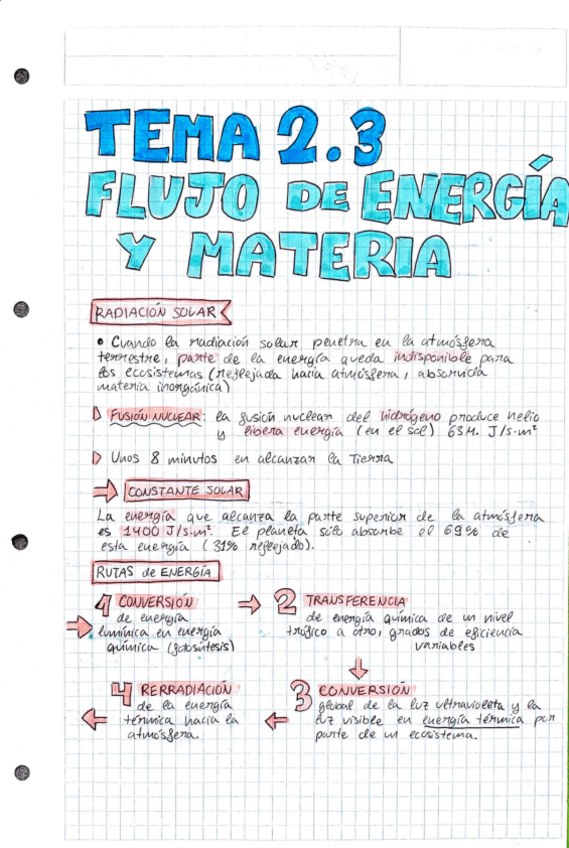 TEMA 2.3
FLUJO DE ENERGÍA
Y MATERIA
RADIACIÓN SOLAR
• Cuando la radiación solar penetra en la atmósfera
terrestre, parte de la energía queda indisponible para
los ecosistemas (reflejada hacia atmósfera, absorvida
materia inorgánica)
FUSIÓN NUCLEAR: la fusión nuclear del hidrógeno produce helio
y libera energía (en el sol) 63M. J/s·m²
Unos 8 minutos en alcanzar la Tierra
CONSTANTE SOLAR
La energía que alcanza la parte superior de la atmósfera
es 1400 J/s·m². El planeta sólo absorbe el 69% de
esta energía (31% reflejado).
RUTAS de ENERGÍA
1 CONVERSIÓN
de energía
lumínica en energía
química (fotosíntesis)
2 TRANSFERENCIA
de energía química de un nivel
trófico a otro, grados de eficiencia
variables
3 CONVERSIÓN
global de la luz ultravioleta y la
luz visible en energía térmica por
parte de un ecosistema.
4 RERRADIACIÓN
de la energía
térmica hacia la
atmósfera.